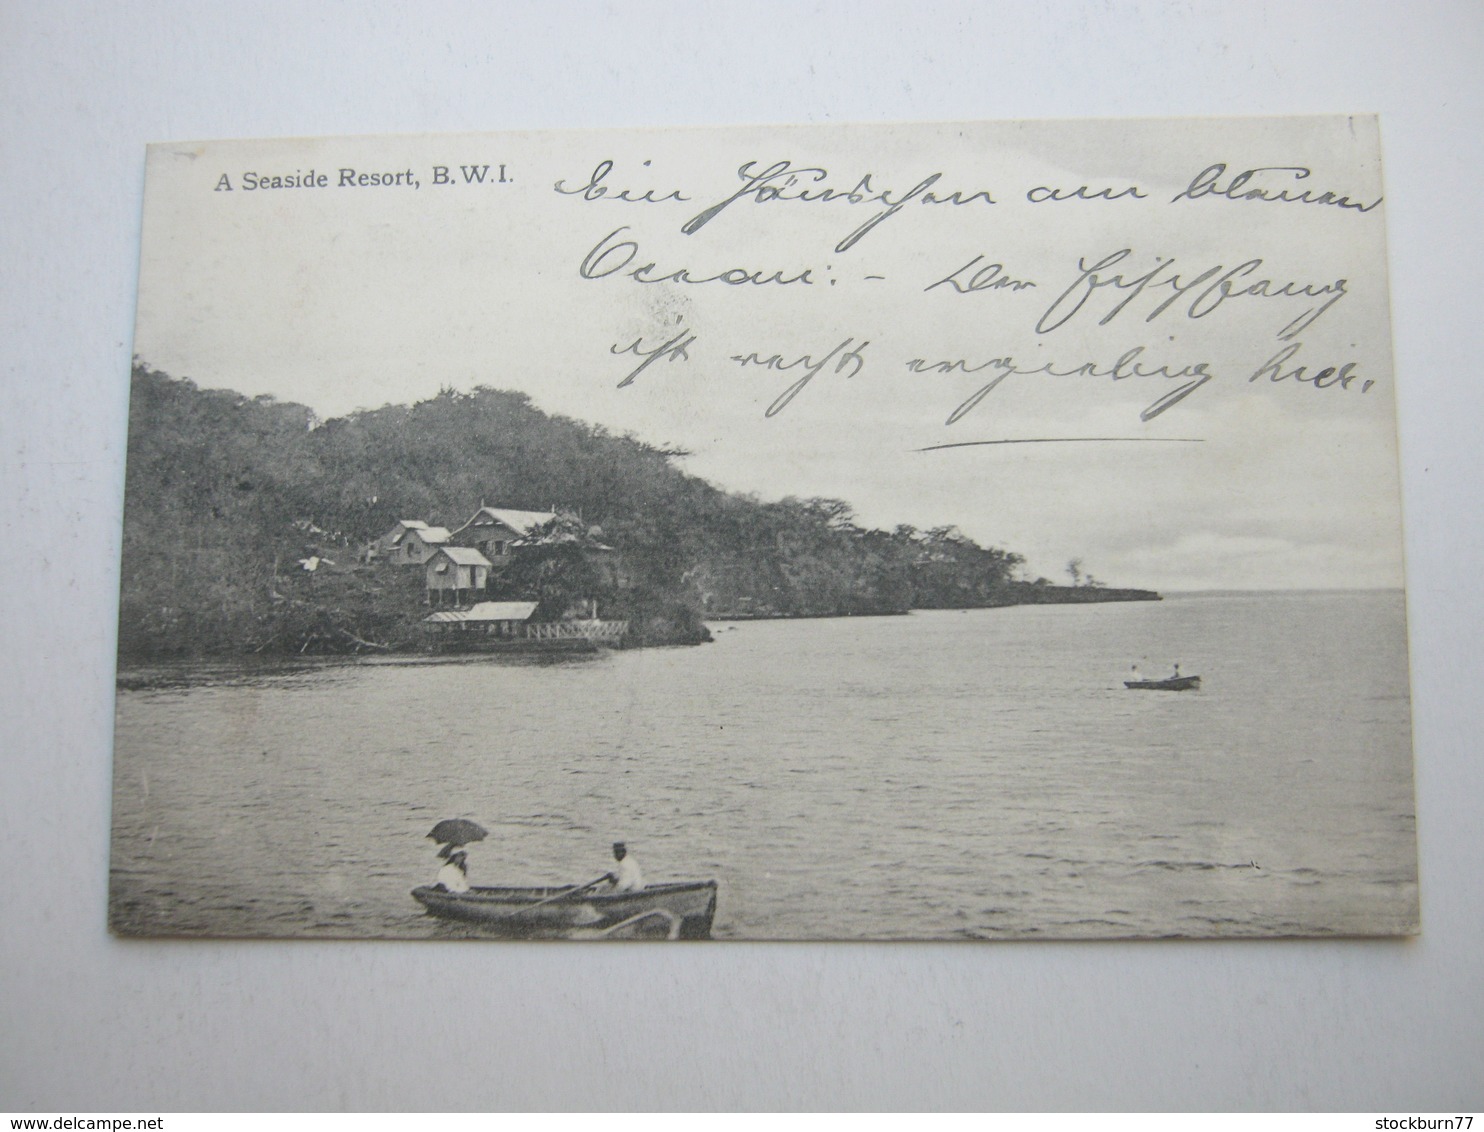 A Seaside Resort, B.W.I.
Ein Häuschen am blauen
Ocean: - Der Fischfang
ist recht ergiebig hier.
www.delcampe.net
stockburn77